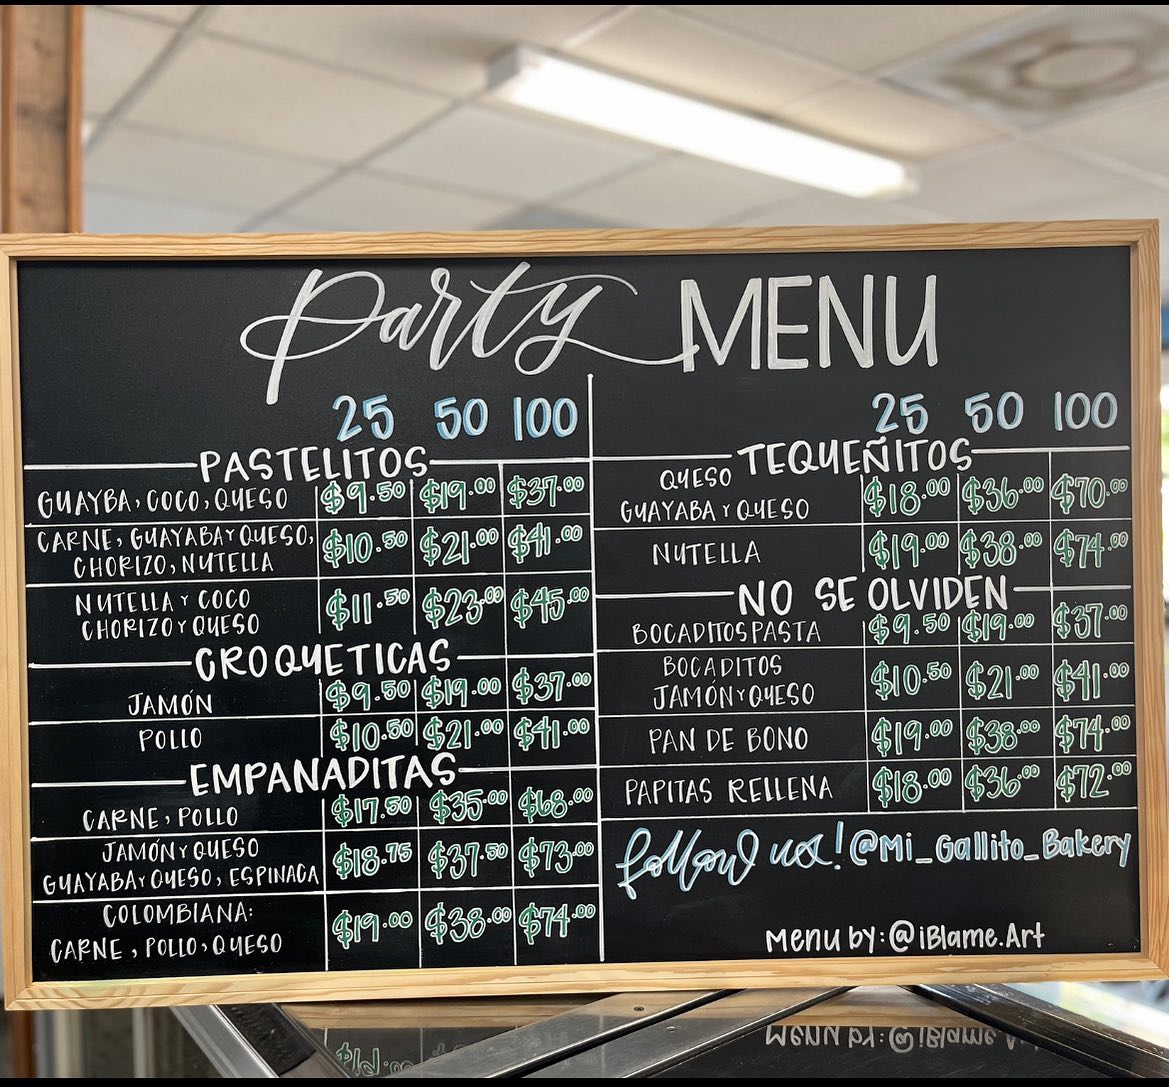 Party MENU
25 50 100
PASTELITOS
GUAYBA, COCO, QUESO $9.50 $19.00 $37.00
CARNE, GUAYABA Y QUESO,
CHORIZO, NUTELLA $10.50 $21.00 $41.00
NUTELLA Y COCO
CHORIZO Y QUESO $11.50 $23.00 $45.00
CROQUETICAS
JAMÓN $9.50 $19.00 $37.00
POLLO $10.50 $21.00 $41.00
EMPANADITAS
CARNE, POLLO $17.50 $35.00 $68.00
JAMÓN Y QUESO
GUAYABA Y QUESO, ESPINACA $18.75 $37.50 $73.00
COLOMBIANA:
CARNE, POLLO, QUESO $19.00 $38.00 $74.00
25 50 100
TEQUEÑITOS
QUESO
GUAYABA Y QUESO $18.00 $36.00 $70.00
NUTELLA $19.00 $38.00 $74.00
NO SE OLVIDEN
BOCADITOS PASTA $9.50 $19.00 $37.00
BOCADITOS
JAMÓN Y QUESO $10.50 $21.00 $41.00
PAN DE BONO $19.00 $38.00 $74.00
PAPITAS RELLENA $18.00 $36.00 $72.00
follow us! @Mi_Gallito_Bakery
Menu by: @iBlame.Art